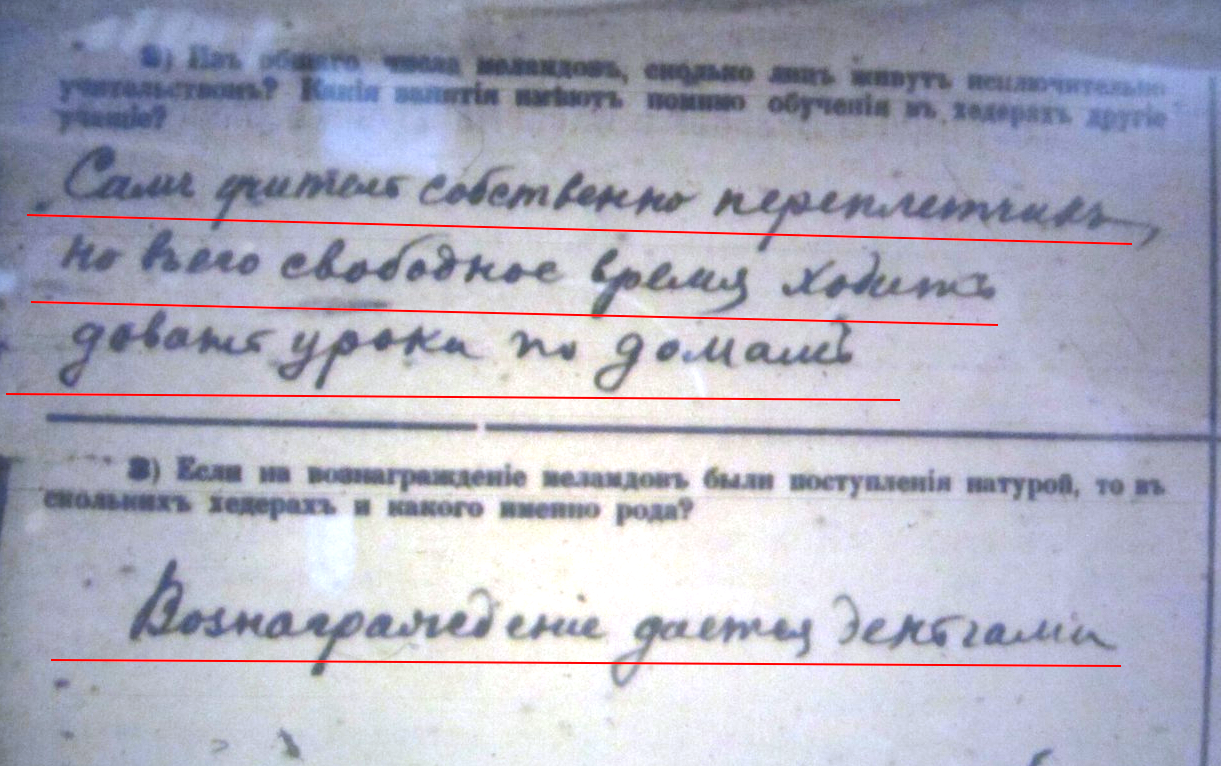 2) Изъ общаго числа меламдовъ, сколько лицъ живутъ исключительно
учительствомъ? Какія занятія имѣютъ помимо обученія въ хедерахъ другіе
учащіе?
Самъ учитель собственно переплетчикъ,
но въ его свободное время ходитъ
довать уроки по домамъ
3) Если на вознагражденіе меламдовъ были поступленія натурой, то въ
сколькихъ хедерахъ и какого именно рода?
Вознагражденіе дается деньгами